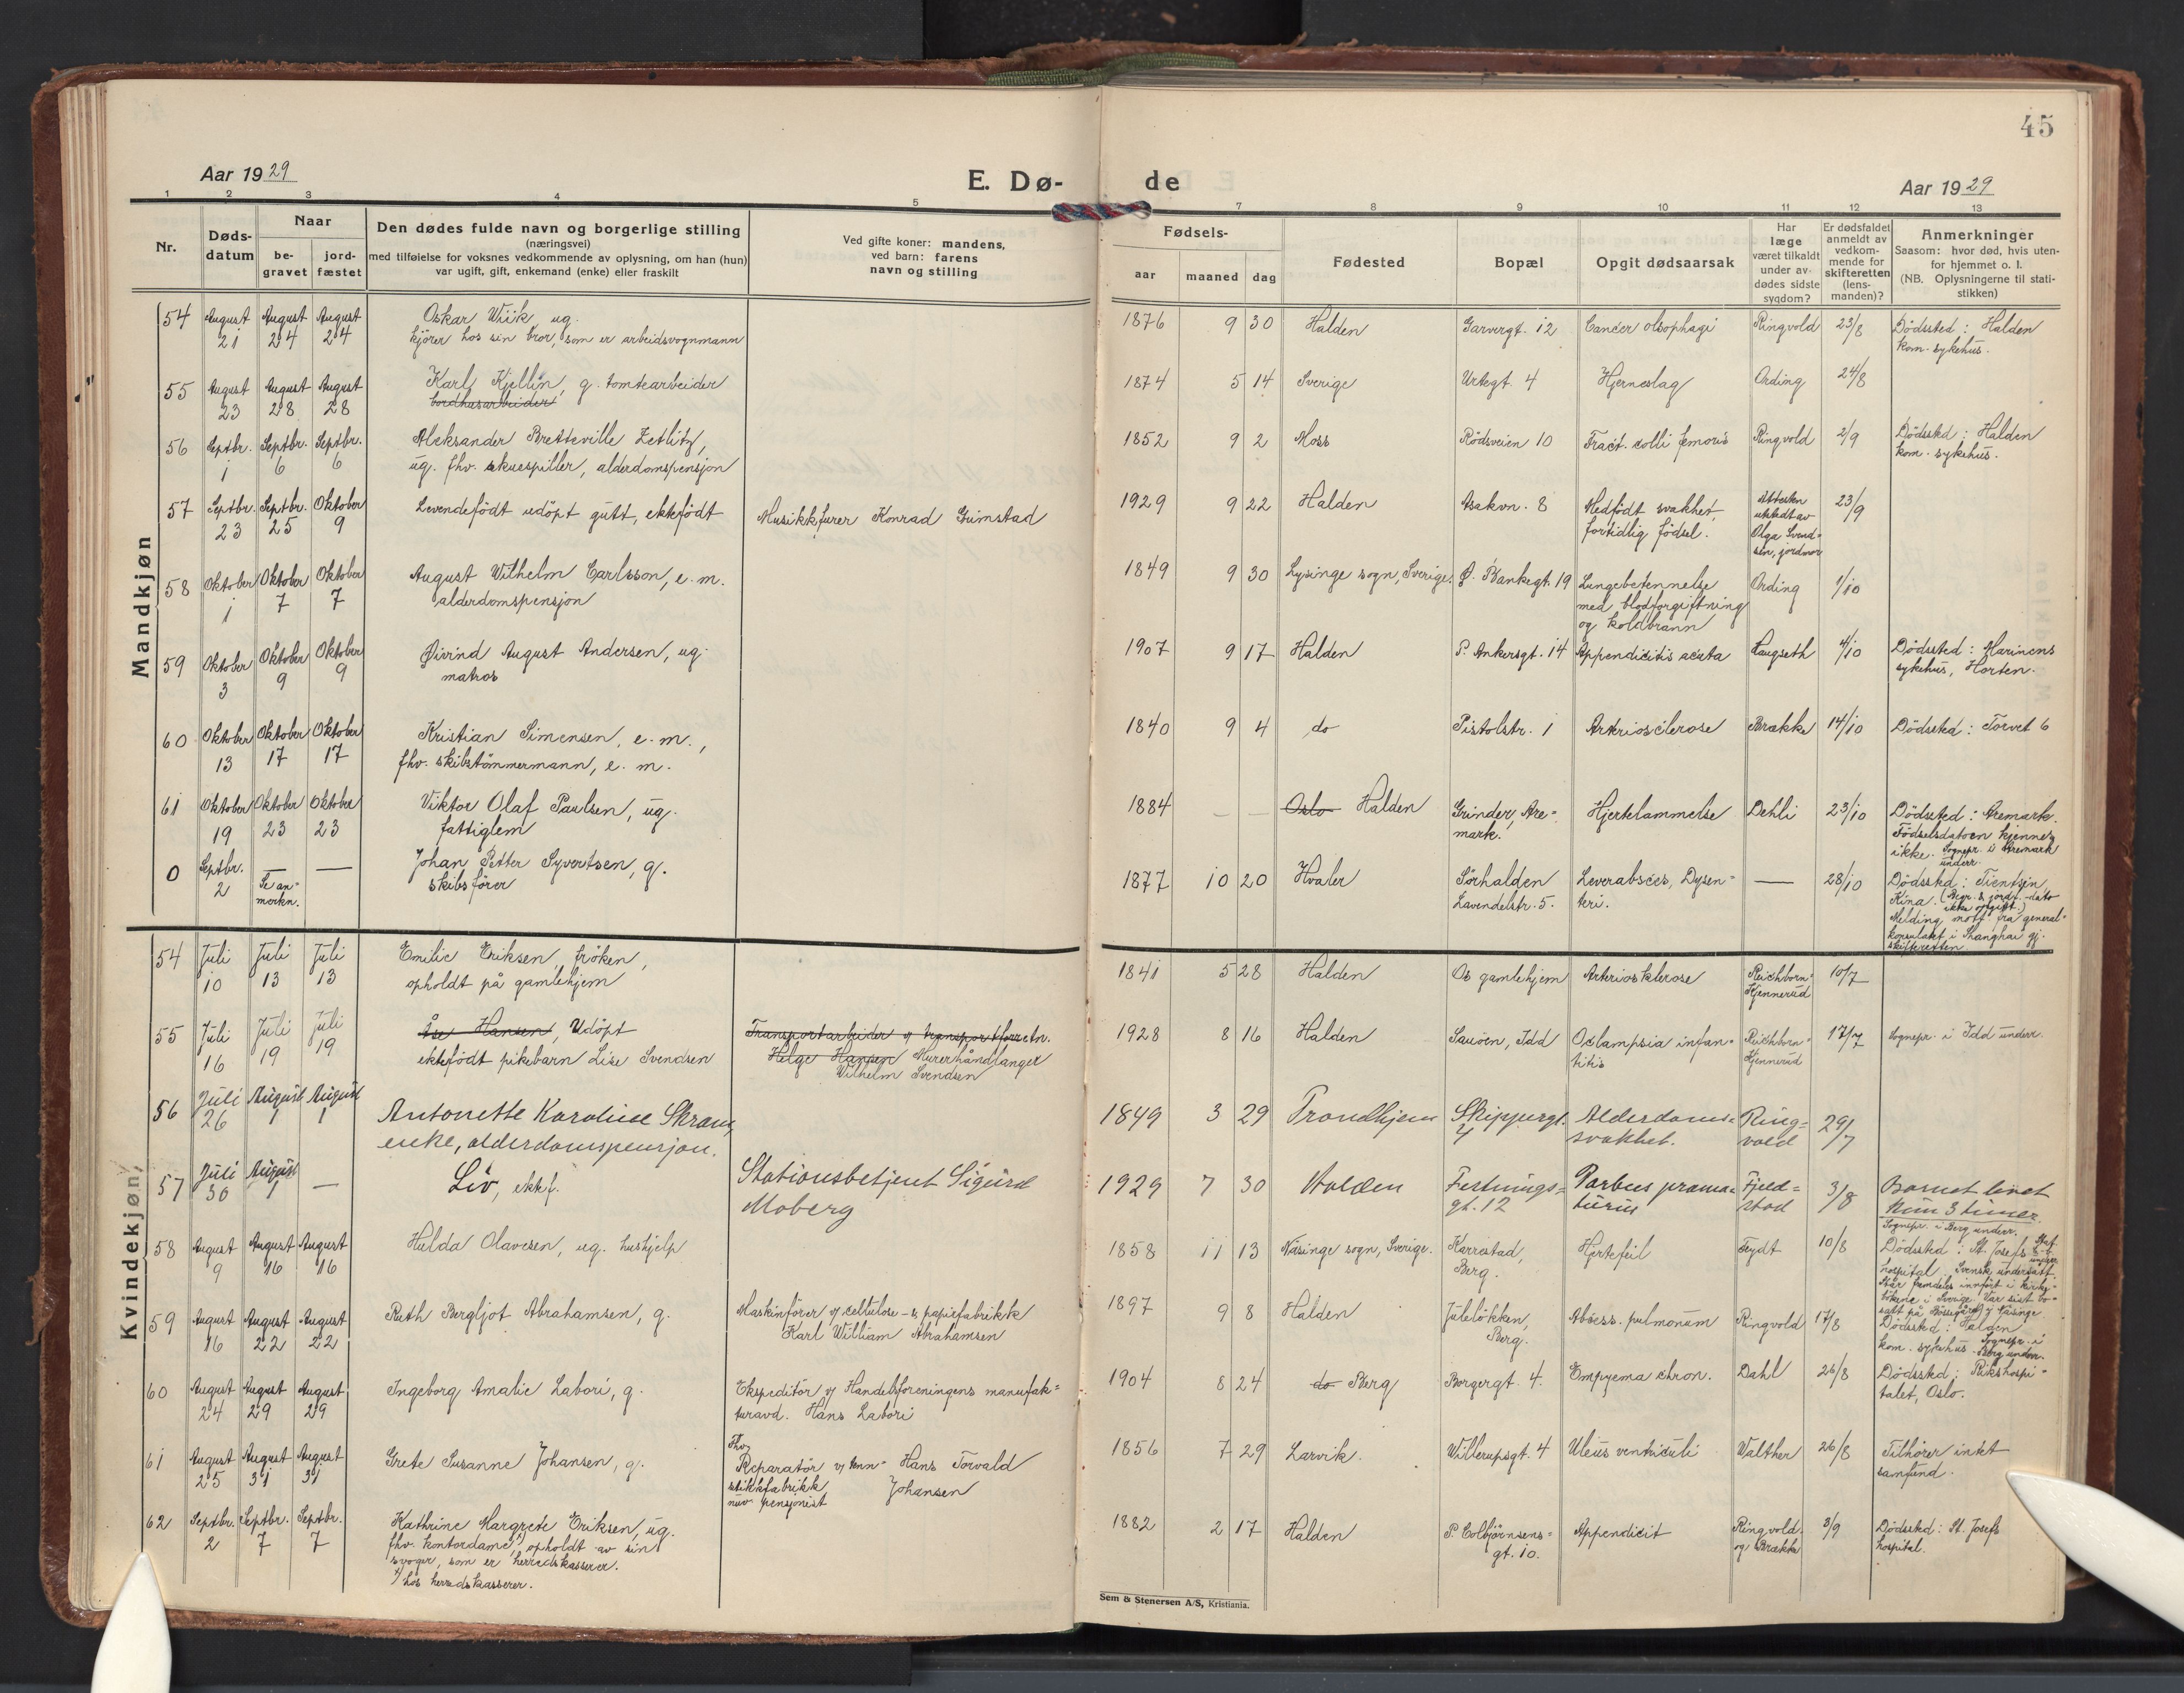 45
Aar 1929
E. Dø-
de
Aar 1929
1 2 3 4 5 7 8 9 10 11 12 13
Nr.
Døds-
datum
Naar
be-
gravet
jord-
fæstet
Den dødes fulde navn og borgerlige stilling
(næringsvei)
med tilføielse for voksnes vedkommende av oplysning, om han (hun)
var ugift, gift, enkemand (enke) eller fraskilt
Ved gifte koner: mandens,
ved barn: farens
navn og stilling
Fødsels-
aar maaned dag
Fødested
Bopæl
Opgit dødsaarsak
Har
læge
været tilkaldt
under av-
dødes sidste
sygdom?
Er dødsfaldet
anmeldt av
vedkom-
mende for
skifteretten
(lens-
manden)?
Anmerkninger
Saasom: hvor død, hvis uten-
for hjemmet o. l.
(NB. Oplysningerne til stati-
stikken)
Mandkjøn
54 August 21 August 24 August 24
Oskar Wiik ug.
kjörer hos sin bror, som er arbeidsvognmann
1876 9 30 Halden Garvergt. 12 Cancer olsophagi Ringvold 23/8
Dödssted: Halden
kom. sykehus.
55 August 23 August 28 August 28
Karl Kjellin, g. tomtearbeider
bordhusarbeider
1874 5 14 Sverige Urtegt. 4 Hjerneslag Ording 24/8
56 Septbr. 1 Septbr. 6 Septbr. 6
Aleksander Bretteville Zetlitz,
ug. fhv. skuespiller, alderdomspensjon
1852 9 2 Moss Rödsveien 10 Fract. colli femoris Ringvold 2/9
Dödssted: Halden
kom. sykehus.
57 Septbr. 23 Septbr. 25 Oktober 9
Levendefödt udöpt gutt, ektefödt
Musikkfurer Konrad Grimstad
1929 9 22 Halden Asakvn. 8
Medfödt svakhet,
fortidlig födsel.
Attesten
utstedt av
Olga Svend-
sen, jordmor
23/9
58 Oktober 1 Oktober 7 Oktober 7
August Wilhelm Carlsson, e. m.
alderdomspensjon
1849 9 30 Lysinge sogn, Sverige. Ø. Bankegt. 19
Lungebetennelse
med blodforgiftning
og koldbrann
Ording 1/10
59 Oktober 3 Oktober 9 Oktober 9
Øivind August Andersen, ug.
matros
1907 9 17 Halden P. Ankersgt. 14 Appendicitis acuta Laugseth 4/10
Dödssted: Marinens
sykehus, Horten.
60 Oktober 13 Oktober 17 Oktober 17
Kristian Simensen, e. m.,
fhv. skibstömmermann, e. m.
1840 9 4 do Pistolstr. 1 Arteriosclerose Brække 14/10
Dödssted: Torvet 6
61 Oktober 19 Oktober 23 Oktober 23
Viktor Olaf Paulsen, ug.
fattiglem
1884 — — Oslo Halden
Grinder, Are-
mark.
Hjertelammelse Dehli 23/10
Dödssted: Aremark.
Födselsdatoen kjennes
ikke. Sognepr. i Aremark
underr.
0 Septbr. 2 — Se an-
merkn. —
Johan Petter Syvertsen, g.
skibsförer
1877 10 20 Hvaler
Sörhalden
Lavendelstr. 5.
Leverabsces, Dysen-
teri.
— 28/10
Dödssted: Tientsin,
Kina. (Begr. & jordf. dato
ikke opgitt.)
Melding mott. fra general-
konsulatet i Shanghai gj.
skifteretten
Kvindekjøn
54 Juli 10 Juli 13 Juli 13
Emilie Eriksen, fröken,
opholdt på gamlehjem
1841 5 28 Halden Os gamlehjem Arteriosklerose
Reichborn-
Kjennerud
10/7
55 Juli 16 Juli 19 Juli 19
Åse Hansen, Udöpt
ektefödt pikebarn Lise Svendsen
Transportarbeider v/ transportforretn.
Helge Hansen Murerhåndlanger
Wilhelm Svendsen
1928 8 16 Halden Sauöen, Idd
Eclampsia infan-
tilis
Reichborn-
Kjennerud
17/7 Sognepr. i Idd underr.
56 Juli 26 August 1 August 1
Antonette Karoline Skram,
enke, alderdomspensjon.
1849 3 29 Trondhjem
Skippergt.
4
Alderdoms-
svakhet.
Ring-
vold
29/7
57 Juli 30 August 1 —
Liv, ektef.
Stationsbetjent Sigurd
Moberg
1929 7 30 Halden
Festnings-
gt. 12
Partus prama-
turus
Fjeld-
stad
3/8
Barnet levet
kun 3 timer.
58 August 9 August 16 August 16
Hulda Olavesen, ug. hushjelp
1858 11 13 Näsinge sogn, Sverige.
Karrestad,
Berg.
Hjertefeil Feydt 10/8
Sognepr. i Berg underr.
Dödssted: St. Josefs
hospital. Svensk undersått.
Står fremdeles innfört i kirke-
bökene i Sverige. Var sist bo-
satt på Näsinge
59 August 16 August 22 August 22
Ruth Bergljot Abrahamsen, g.
Maskinförer v/ cellulose- & papirfabrikk
Karl William Abrahamsen
1897 9 8 Halden
Juleløkken,
Berg.
Absess. pulmonum Ringvold 17/8
Dödssted: Halden
kom. sykehus. Sognepr. i
Berg underr.
60 August 24 August 29 August 29
Ingeborg Amalie Labori, g.
Ekspeditör v/ Handelsforeningens manufak-
turavd. Hans Labori
1904 8 24 do Berg Borgergt. 4. Empyema chron. Dahl 26/8
Dödssted: Rikshospi-
talet, Oslo.
61 August 25 August 31 August 31
Grete Susanne Johansen, g.
Fhv.
Reparatör v/ tenn- Hans Torvald
stikkfabrikk Johansen
nuv. pensjonist
1856 7 29 Larvik. Willerupsgt. 4 Ulcus ventriculi Walther 26/8
Tilhörer intet
samfund.
62 Septbr. 2 Septbr. 7 Septbr. 7
Kathrine Margrete Eriksen, ug.
fhv. kontordame, opholdt av sin
svoger, som er herredskasserer.
x) hos herredskasserer.
1882 2 17 Halden
P. Colbjörnsens-
gt. 10.
Appendicit
Ringvold
og Brække
3/9
Dödssted: St. Josefs
hospital.
Sem & Stenersen A/S, Kristiania.